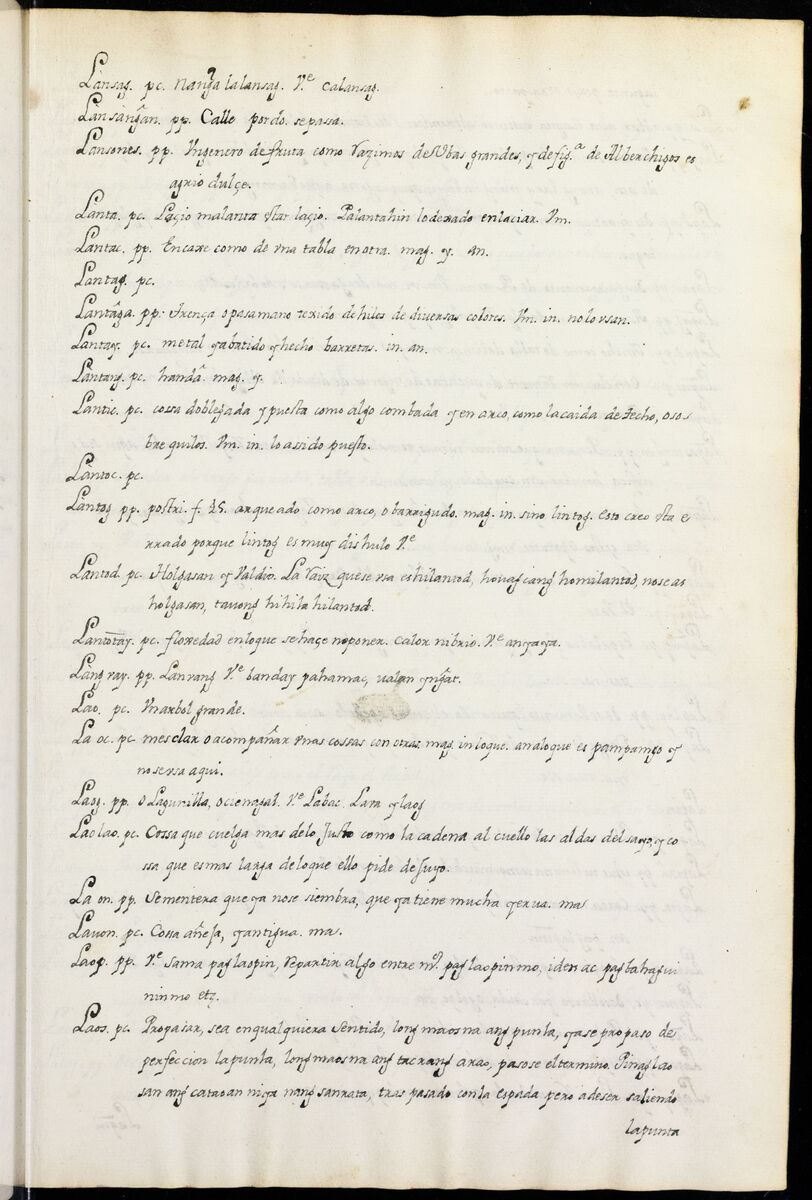 Lànsag. pc. nang̃a lalansag. V.e Calansag.
Lansáng̃an. pp. Calle pordo. se passa.
Lansones. pp. Vngenero defruta como Razimos de Vbas grandes, y de fig.a de Alberchigos es
agrio dulçe.
Lanta. pc. Laçio malanta star laçio. Palantahin lo dexado enlaciar. Vm.
Lantac. pp. Encaxe como de vna tabla en otra. mag. y. an.
Lantag. pc.
Lantága. pp. trença o pasamano texido dehilos de diversas colores. Vm. in. nolo vsan.
Lantay. pc. metal yabatido yhecho barretas. in. an.
Lantang. pc. handâ. mag. y.
Lantic. pc. cossa doblegada y puesta como algo combada y en arco, como la caida de techo, o sos
bre quilos. Vm. in. lo assido puesto.
Làntoc. pc.
Lantog pp. postri. f. 25. arqueado como arco, o barrigudo. mag. in. sino lintog. esto creo sta e
rrado porque lintog es muy dishulo V.e
Lantod. pc. Holgasan y Valdio. La Raiz quese vsa es hilantod, houag cang homilantod, noseas
holgasan, tauong hihila hilantod.
Lantotay. pc. floxedad enloque sehaçe noponer. calor nibrio. V.e anyaya.
Làng ray. pp. Lanrang V.e banday pahamac, ualan yng̃at.
Lao. pc. Vnarbol grande.
La oc. pc. mesclar o acompañar vnas cossas con otras. mag. in loque. analoque es pampango y
nosevsa aqui.
Laog. pp. o Lagunilla, o cienagal. V.e Labac. Lara y laog
Laolao. pc. Cossa que cuelga mas delo Justo como la cadena al cuello las aldas del sayo, y co
ssa que es mas larga deloque ello pide de suyo.
La on. pp. Sementera que ya nose siembra, que ya tiene mucha yerua. mas
Lauon. pc. Cossa añeja, y antigua. mas.
Laop. pp. V.e sama paglaopin, Repartir algo entre m.s paglaopinmo, iden ac pagbahagui
ninmo etz.
Laos. pc. Propasar, sea en qualquiera sentido, long maos na ang punta, yase propaso de
perfeccion la punta, longmaos na ang tacrang arao, pàsose eltermino. Pinaglao
san ang catàoan niya nang sandata, tras pasado conla espada pero adeser saliendo
lapunta